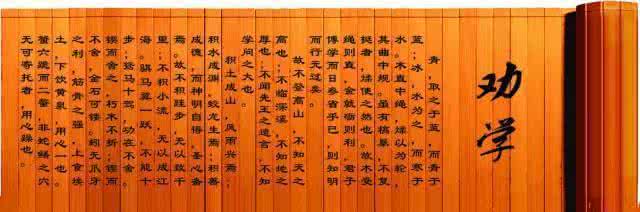 劝学
青,取之于蓝,而青于
蓝;冰,水为之,而寒于
水。木直中绳,煣以为轮,
其曲中规。虽有槁暴,不复
挺者,煣使之然也。故木受
绳则直,金就砺则利,君子
博学而日参省乎己,则知明
而行无过矣。
故不登高山,不知天之
高也;不临深溪,不知地之
厚也;不闻先王之遗言,不知
学问之大也。
积土成山,风雨兴焉;
积水成渊,蛟龙生焉;积善
成德,而神明自得,圣心备
焉。故不积跬步,无以致千
里;不积小流,无以成江
海。骐骥一跃,不能十
步;驽马十驾,功在不舍。
锲而舍之,朽木不折;锲而
不舍,金石可镂。蚓无爪牙
之利,筋骨之强,上食埃
土,下饮黄泉,用心一也。
蟹六跪而二螯,非蛇鳝之穴
无可寄托者,用心躁也。